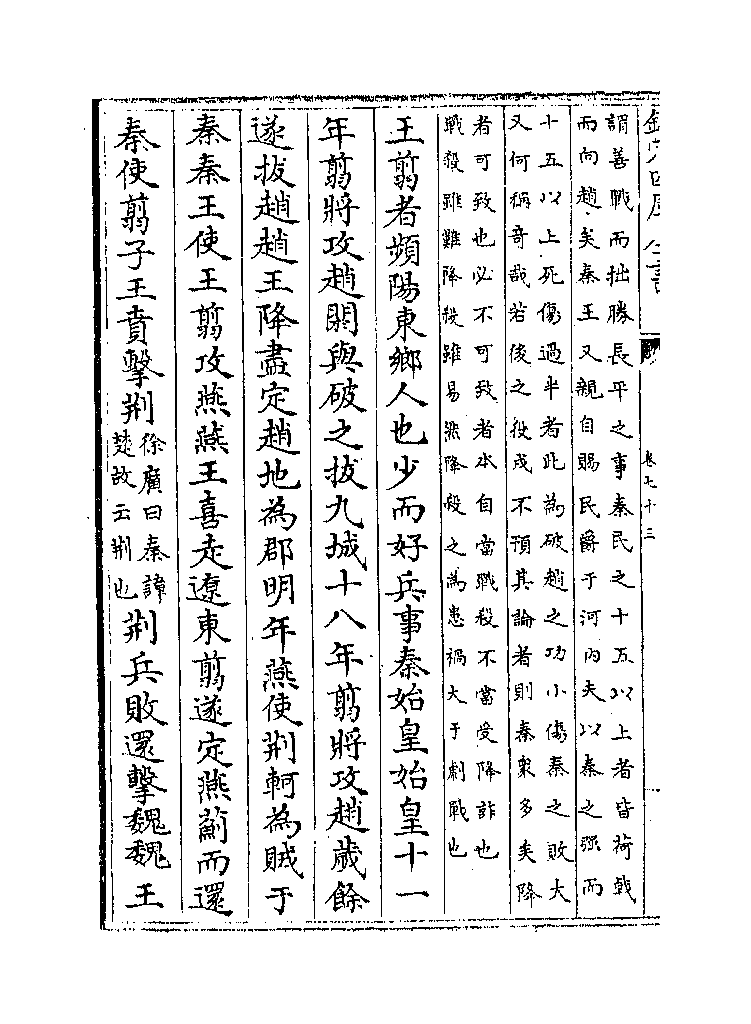 欽定四庫全書
卷七十三
謂善戰而拙勝長平之事秦民之十五以上者皆荷戟
而向趙矣秦王又親自賜民爵于河内夫以秦之彊而
十五以上死傷過半者此為破趙之功小傷秦之敗大
又何稱奇哉若後之役戍不預其論者則秦衆多矣降
者可致也必不可致者本自當戰殺不當受降詐也
戰殺雖難降殺雖易然降殺之為患禍大于劇戰也
王翦者頻陽東鄉人也少而好兵事秦始皇始皇十一
年翦將攻趙閼與破之拔九城十八年翦將攻趙歲餘
遂拔趙趙王降盡定趙地為郡明年燕使荆軻為賊于
秦秦王使王翦攻燕燕王喜走遼東翦遂定燕薊而還
秦使翦子王賁擊荆
徐廣曰秦諱
楚故云荆也
荆兵敗還擊魏魏王